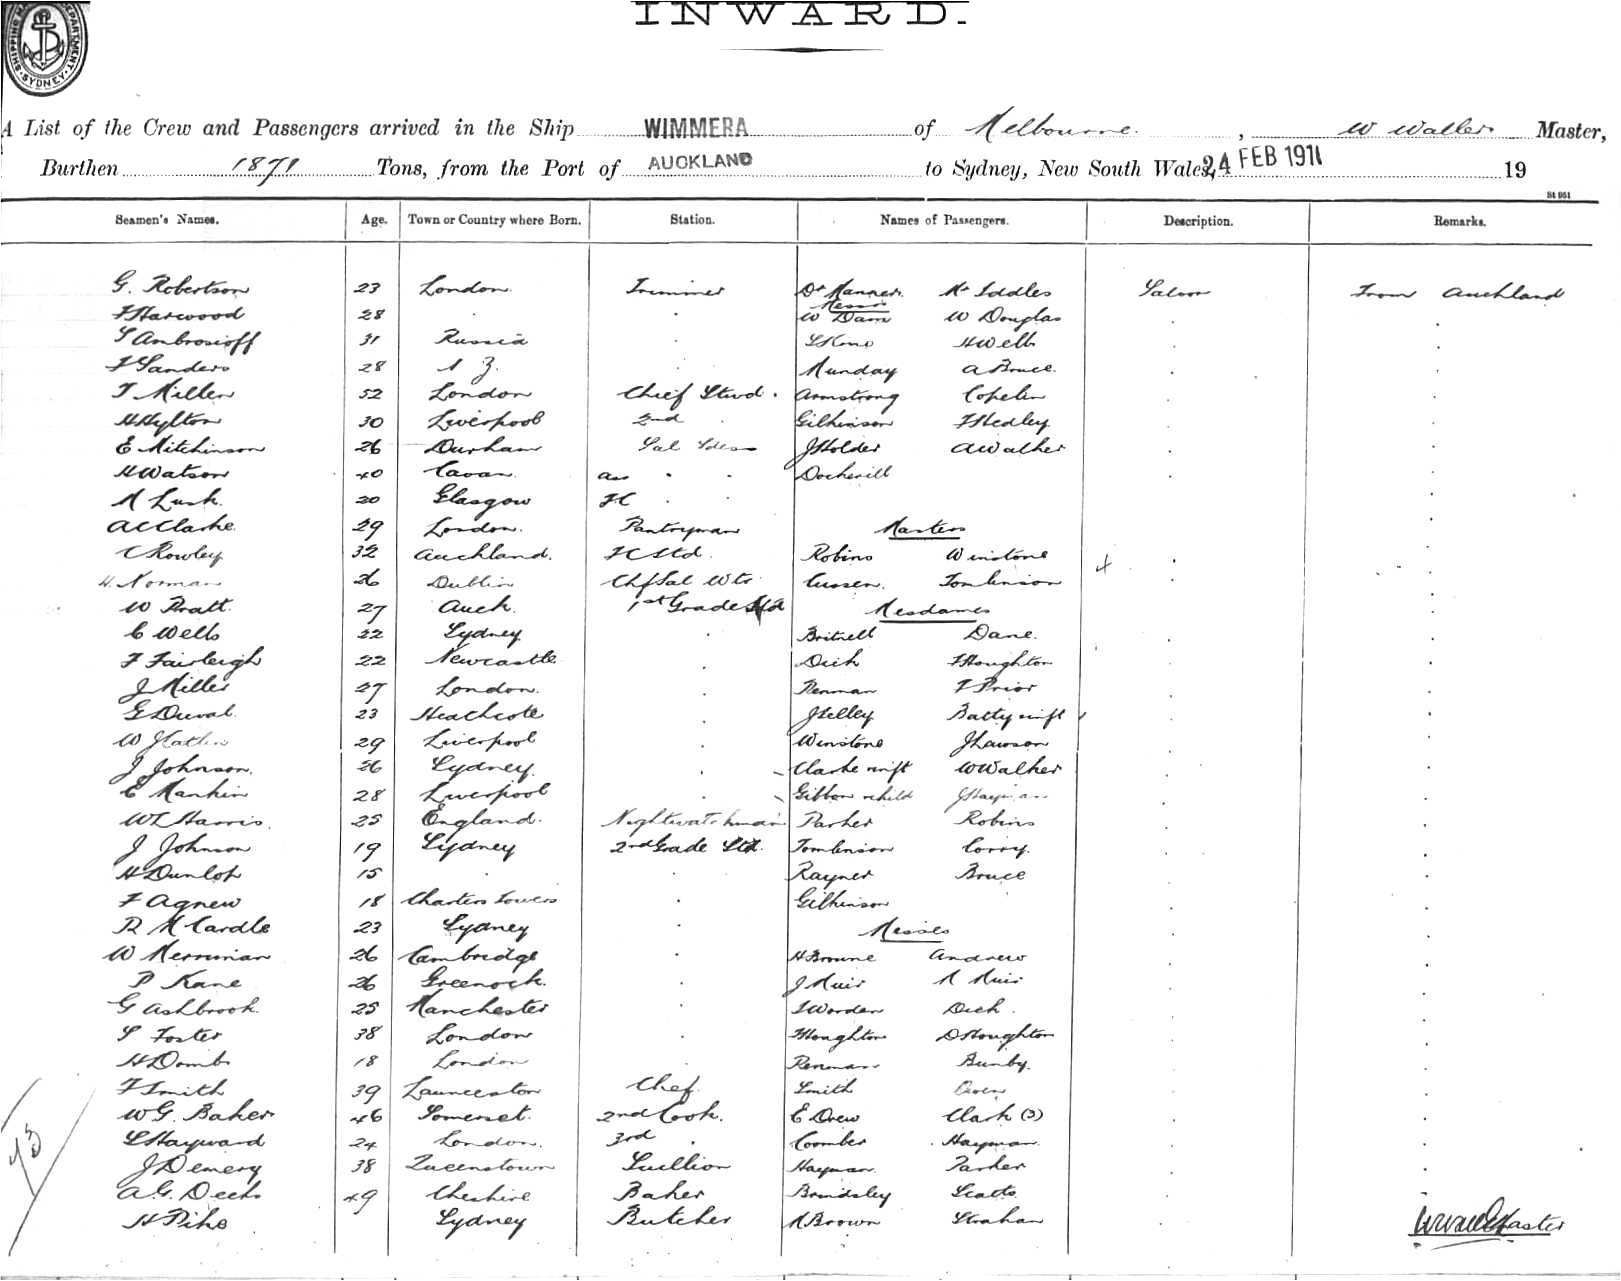 INWARD.
SHIPPING SYDNEY
A List of the Crew and Passengers arrived in the Ship WIMMERA of Melbourne, W Waller Master,
Burthen 1871 Tons, from the Port of AUCKLAND to Sydney, New South Wales, 24 FEB 1911 19
St 951
Seamen's Names. Age. Town or Country where Born. Station. Names of Passengers. Description. Remarks.
G. Robertson 23 London. Trimmer Dr Manner. Mr Iddles Saloon From Auckland
Messrs
F Harwood 28 " " W Dam W Douglas
S Ambrosioff 31 Russia " H Webb
F Sanders 28 N Z. " Munday A Bruce.
T Miller 52 London Chief Stwd. Armstrong Copelin
H Hylton 30 Liverpool 2nd " Gilkinson F Hedley
E Mitchinson 26 Durham Sal Stdess J Holder A Walker
H Watson 40 Cavan. ass " " Dockerill
M Lusk. 20 Glasgow FC " "
A C Clarke. 29 London. Pantryman Masters
C Rowley 32 Auckland. FC Std. Robins Winstone
H. Norman 26 Dublin Chf Sal Wtr Cussen. Tomlinson
W Pratt. 27 Auck. 1st Grade Std Mesdames
C Wells 22 Sydney " Britnell Dane.
F Fairleigh 22 Newcastle " Dick F Houghton
J Miller 27 London. " Renman F Prior
G Duval. 23 Heathcote " J Kelley Batty
W 29 Liverpool " Winstone J Lawson
J Johnson. 26 Sydney. " Clarke W Walker
C Mankin 28 Liverpool " Gibbon & child J Hayman
W L Harris. 25 England. Nightwatchman Parker Robins
J Johnson 19 Sydney 2nd Grade Std. Tomlinson Corry.
H Dunlop 15 " " Rayner Bruce
F Agnew 18 Charters Towers " Gilkinson
R McCardle 23 Sydney " Misses
W Merriman 26 Cambridge " H Browne Andrew
P Kane 26 Greenock. " J Muir M Muir
G Ashbrook. 25 Manchester " Worden Dick.
S Foster 38 London " F Houghton D Houghton
H Dombs 18 London " Renman Bunby.
F Smith 39 Launceston Chef. Smith Owen
W G. Baker 46 Somerset. 2nd Cook. E Drew Clark (3)
S Hayward 24 London. 3rd " Coomber Hayman.
J Demery 38 Queenstown Scullion Hayman Parker
A. G. Deeks 49 Cheshire Baker Brindsley Scatts
H Pike 30 Sydney Butcher M Brown Strahan W Waller Master